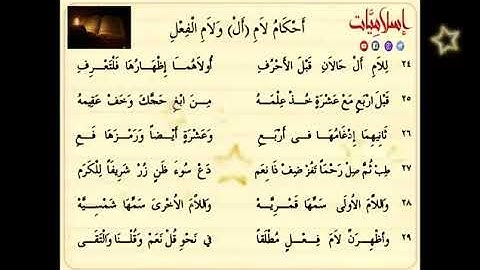 إسلاميَّات
أَحْكَامُ لاَمِ (أَلْ) وَلاَمِ الْفِعْلِ
٢٤ لِلاَمِ أَلْ حَالاَنِ قَبْلَ الأَحْرُفِ أُولاَهُمَا إِظْهَارُهَا فَلْتَعْرِفِ
٢٥ قَبْلَ ارْبَعٍ مَعْ عَشْرَةٍ خُذْ عِلْمَهُ مِنَ ابْغِ حَجَّكَ وَخَفْ عَقِيمَهُ
٢٦ ثَانِيهِمَا إِدْغَامُهَا فِى أَرْبَعِ وَعَشْرَةٍ أَيْضاً وَرَمْزَهَا فَعِ
٢٧ طِبْ ثُمَّ صِلْ رَحْماً تَفُزْ ضِفْ ذَا نِعَمْ دَعْ سُوءَ ظَنٍ زُرْ شَرِيفاً لِلْكَرَمْ
٢٨ وَاللاَّمَ الاُولَى سَمِّهَا قَمَرِيَّهْ وَاللاَّمَ الاُخْرَى سَمِّهَا شَمْسِيَّهْ
٢٩ وأَظْهِرَنَّ لاَمَ فِعْلٍ مُطْلَقاً فِي نَحْوِ قُلْ نَعَمْ وَقُلْنَا وَالْتَقَى